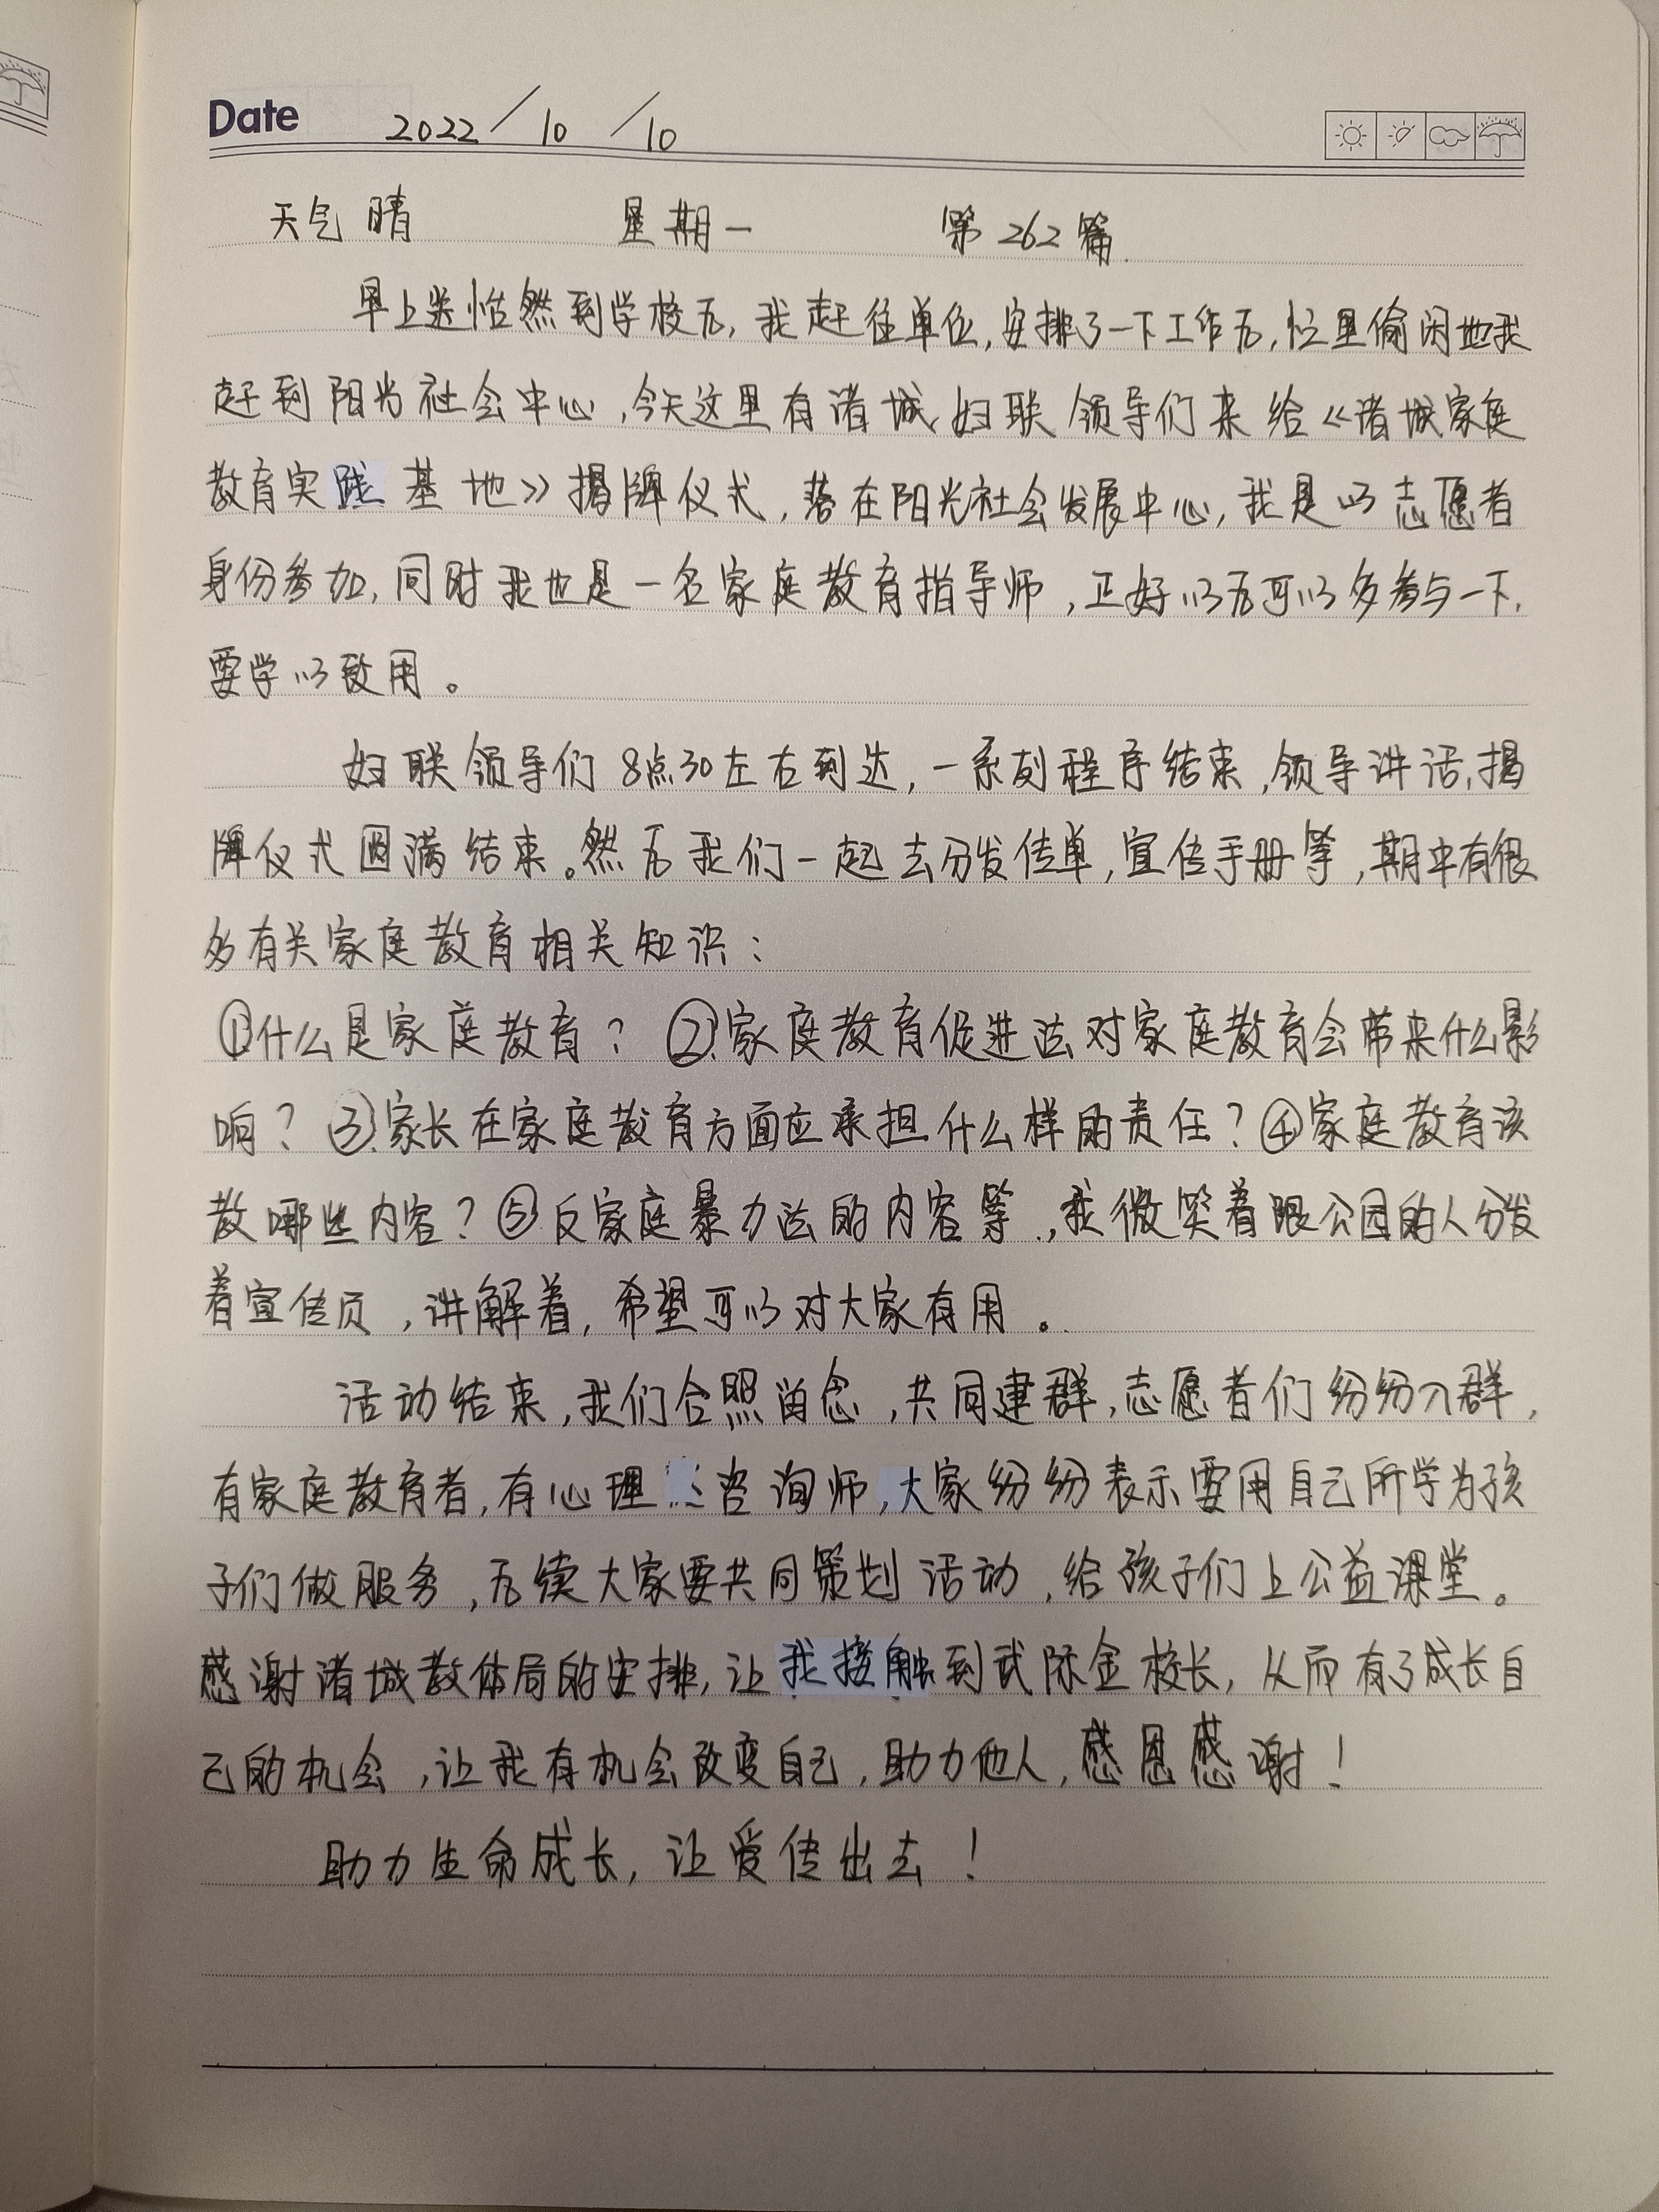 Date 2022/10/10
天气晴 星期一 第262篇
早上送恬然到学校后,我赶往单位,安排了一下工作后,忙里偷闲地我
赶到阳光社会中心,今天这里有诸城妇联领导们来给《诸城家庭
教育实践基地》揭牌仪式,落在阳光社会发展中心,我是以志愿者
身份参加,同时我也是一名家庭教育指导师,正好以后可以多参与一下,
要学以致用。
妇联领导们8点30左右到达,一系列程序结束,领导讲话,揭
牌仪式圆满结束。然后我们一起去分发传单,宣传手册等,期中有很
多有关家庭教育相关知识:
①什么是家庭教育? ②家庭教育促进法对家庭教育会带来什么影
响? ③家长在家庭教育方面应承担什么样的责任?④家庭教育该
教哪些内容?⑤反家庭暴力法的内容等.,我微笑着跟公园的人分发
着宣传页,讲解着,希望可以对大家有用。
活动结束,我们合照留念,共同建群,志愿者们纷纷入群,
有家庭教育者,有心理咨询师,大家纷纷表示要用自己所学为孩
子们做服务,后续大家要共同策划活动,给孩子们上公益课堂。
感谢诸城教体局的安排,让我接触到武际金校长,从而有了成长自
己的机会,让我有机会改变自己,助力他人,感恩感谢!
助力生命成长,让爱传出去!